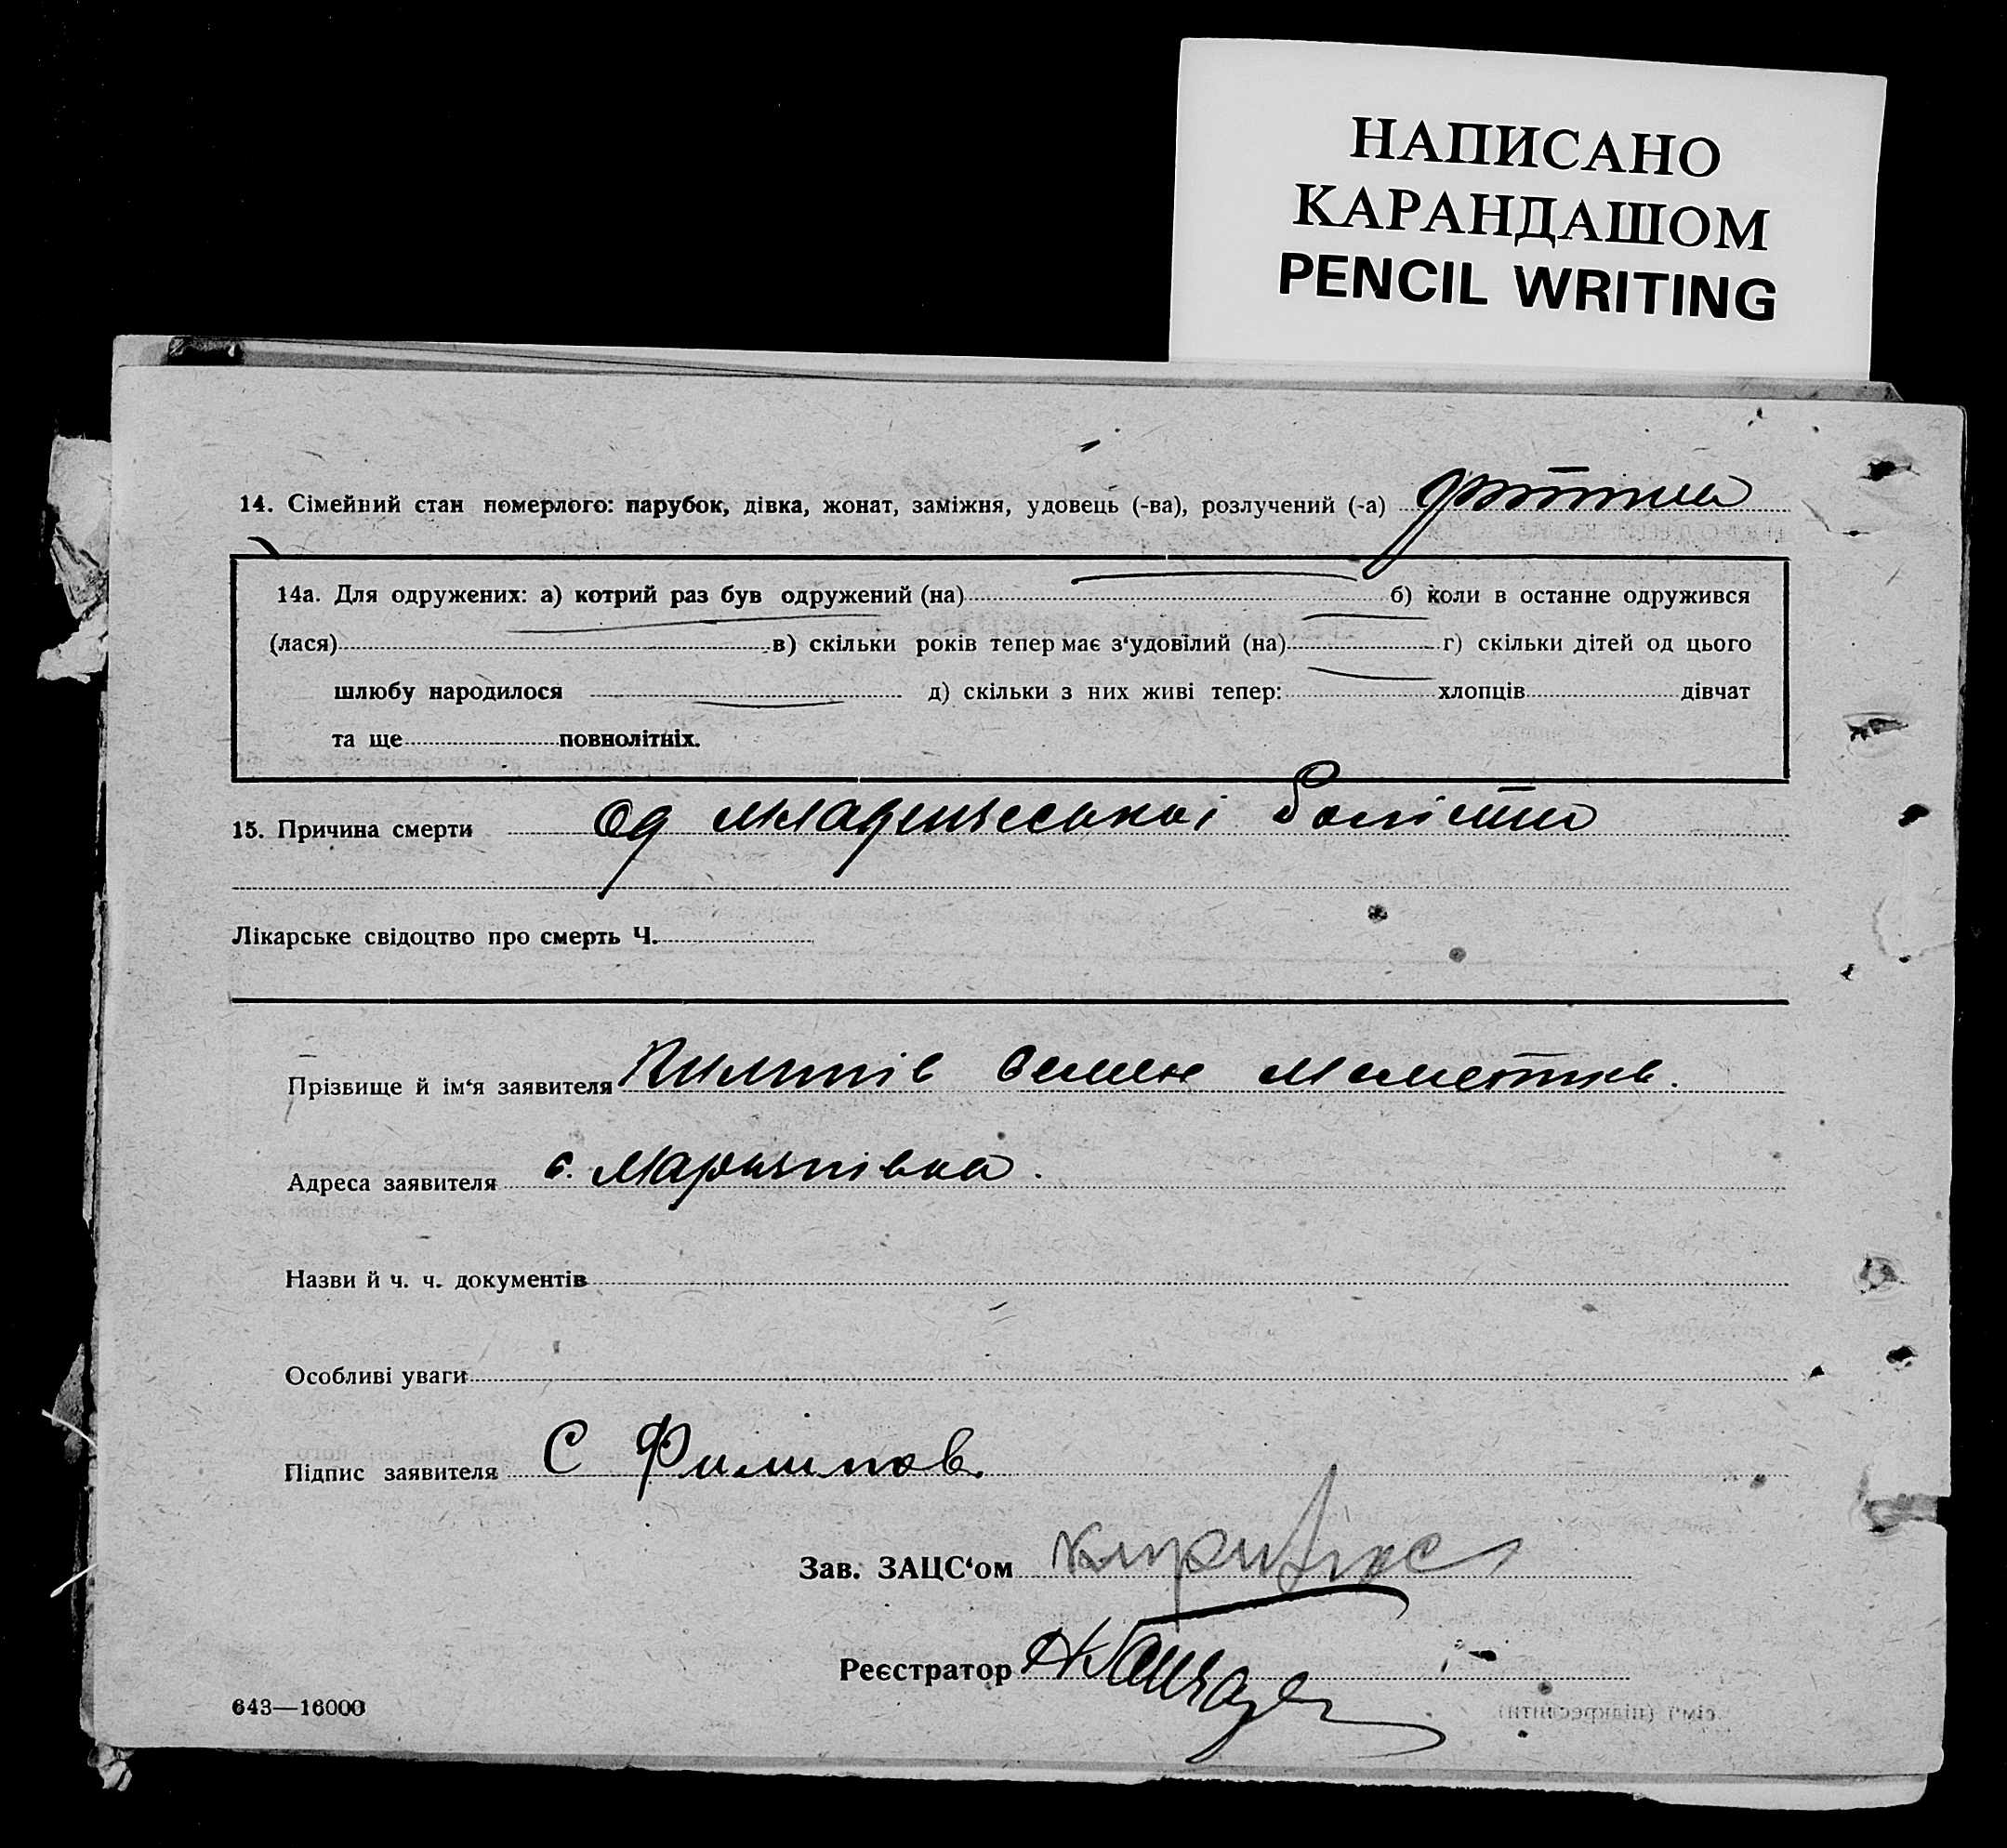 НАПИСАНО
КАРАНДАШОМ
PENCIL WRITING
14. Сімейний стан померлого: парубок, дівка, жонат, заміжня, удовець (-ва), розлучений (-а) дитина
14а. Для одружених: а) котрий раз був одружений (на) б) коли в останне одружився
(лася) в) скільки років тепер має з‘удовілий (на) г) скільки дітей од цього
шлюбу народилося д) скільки з них живі тепер: хлопців дівчат
та ще повнолітніх.
15. Причина смерти од младенческої болісти
Лікарське свідоцтво про смерть Ч.
Прізвище й ім‘я заявителя Пилипів Семен
Адреса заявителя с. Марьянівка.
Назви й ч. ч. документів
Особливі уваги
Підпис заявителя С Филипов
Зав. ЗАЦС‘ом
Реєстратор
643—16000